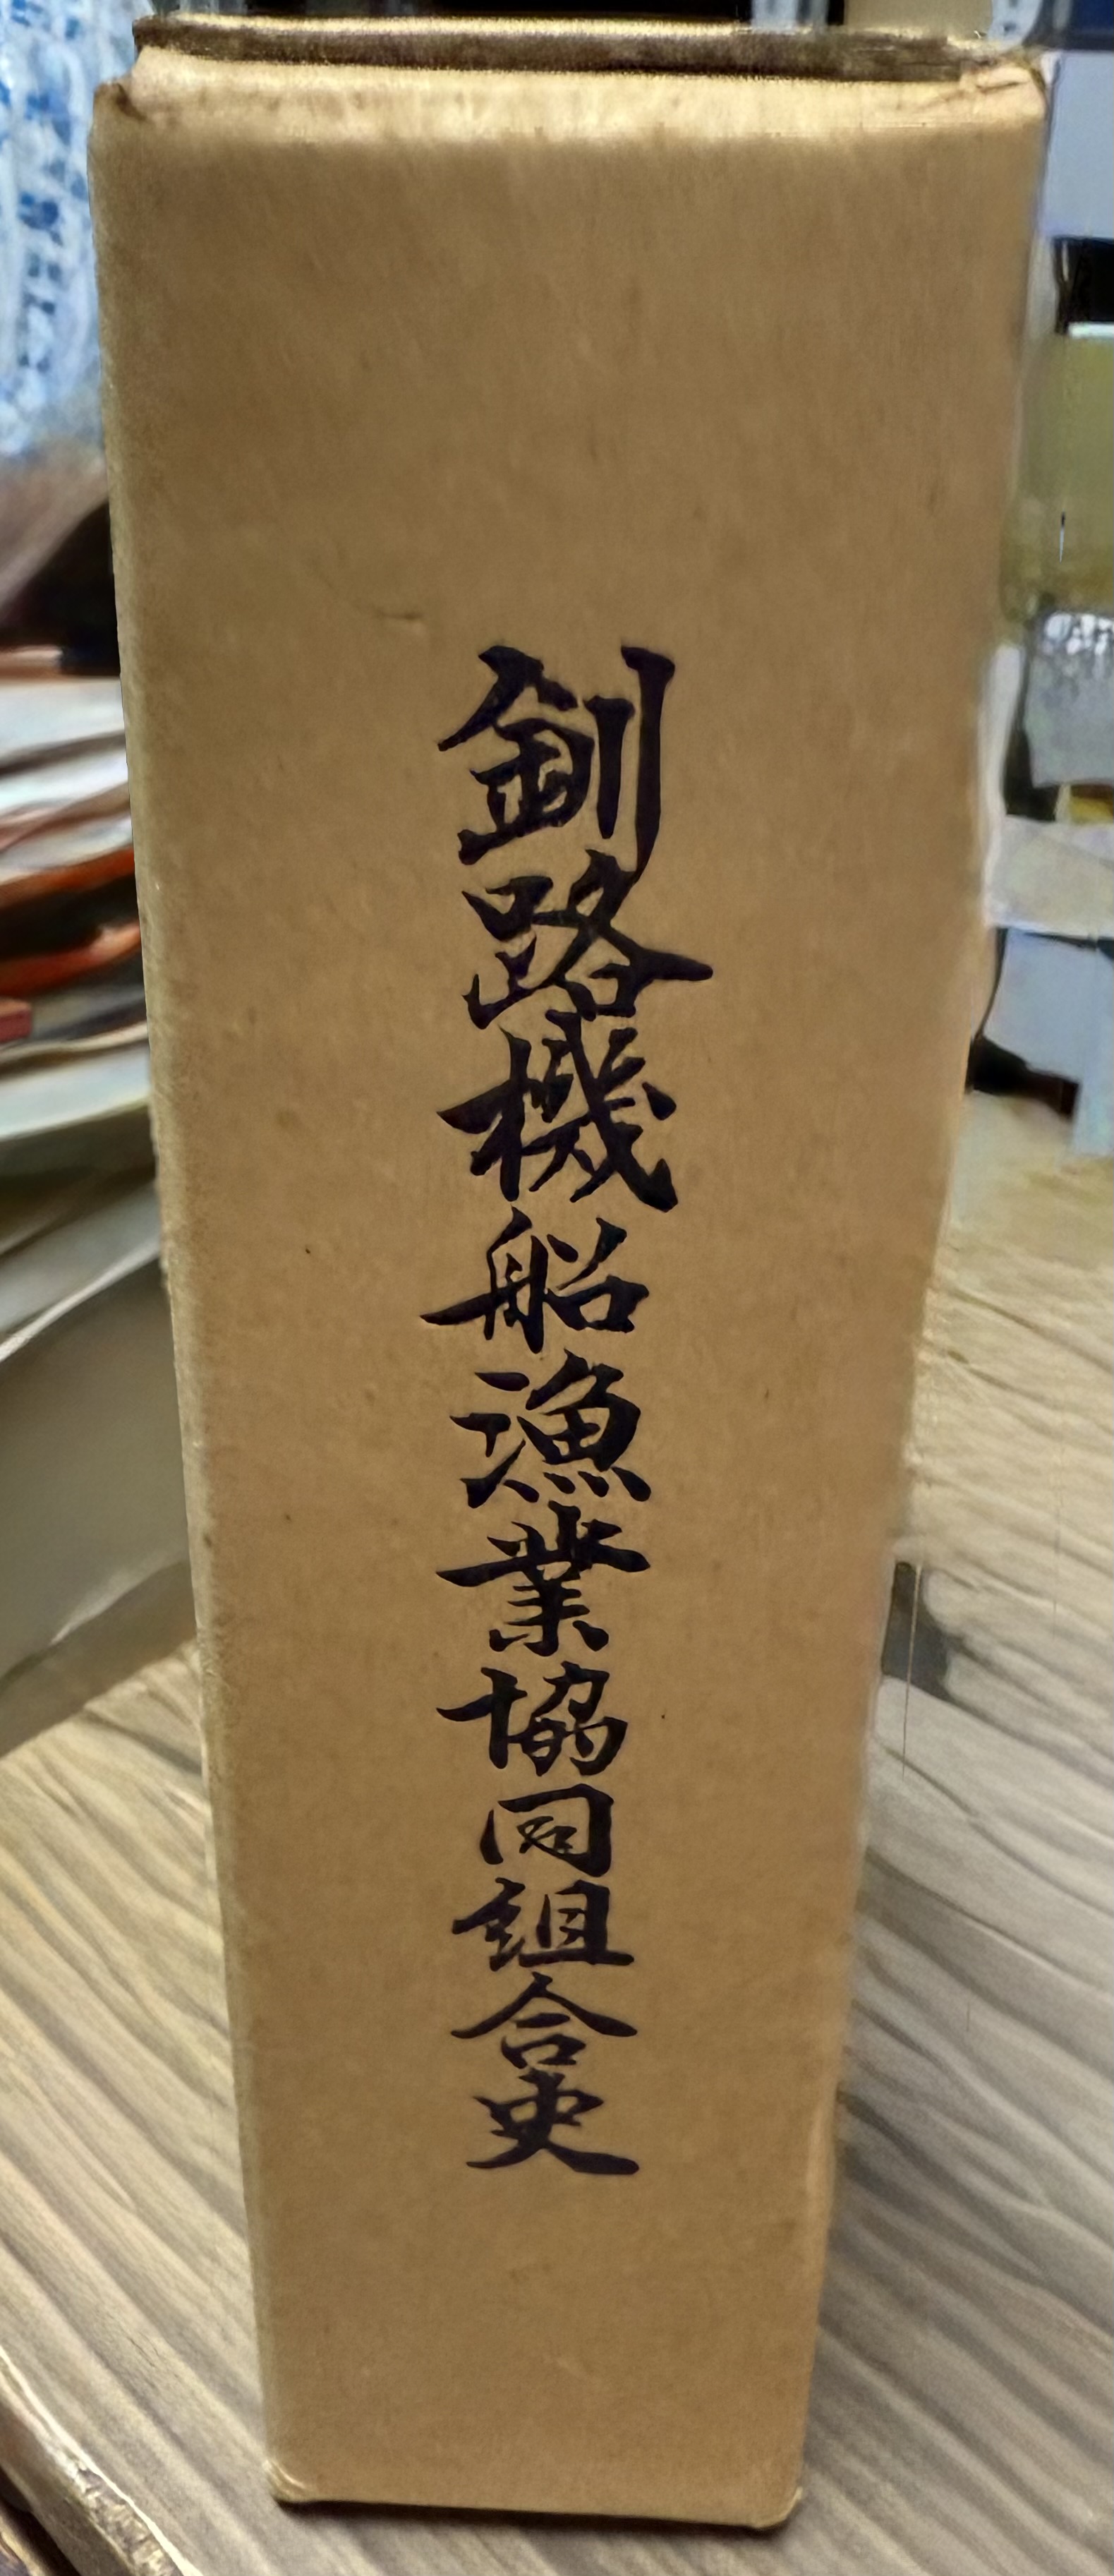 釧路機船漁業協同組合史